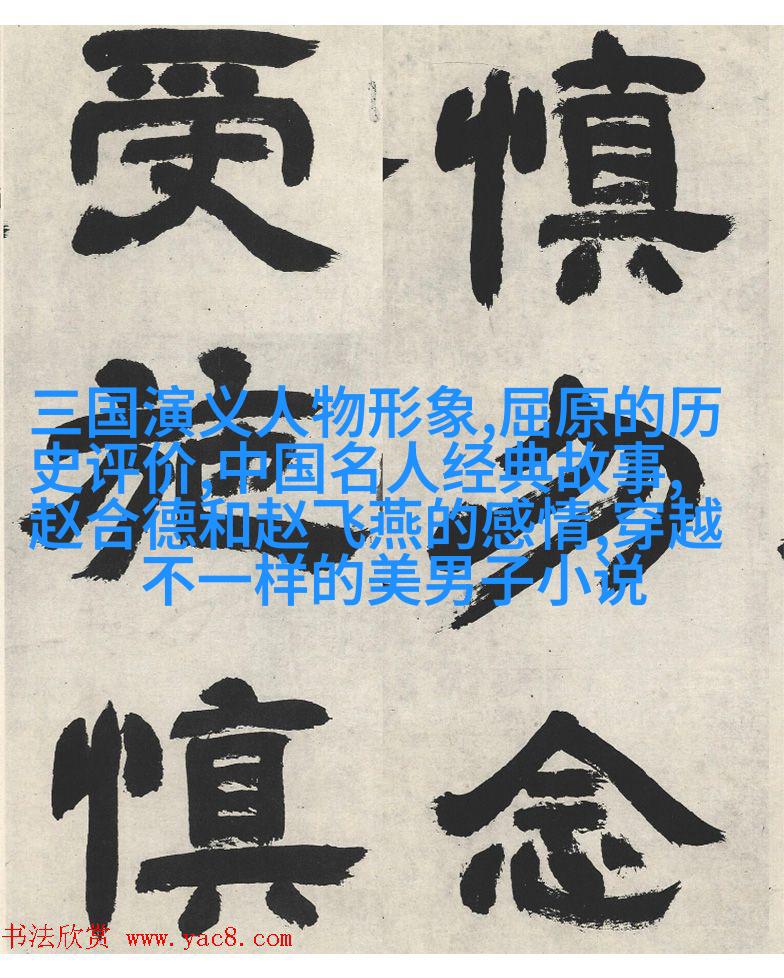 慎勿念
受施慎
三国演义人物形象,屈原的历
史评价,中国名人经典故事,
赵合德和赵飞燕的感情,穿越
不一样的美男子小说
书法欣赏 www.yac8.com